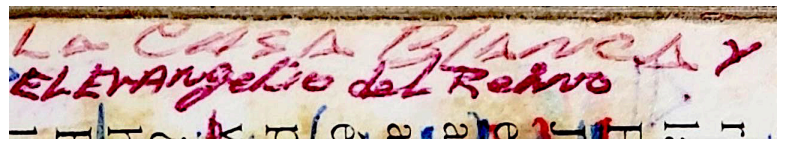 La Casa Blanca y
EL EvAngelio del Reino